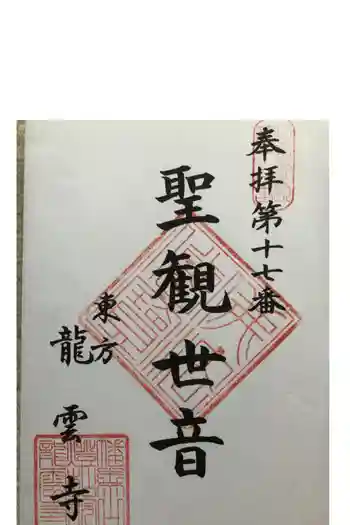 奉拝第十七番
聖観世音
東方
龍雲寺